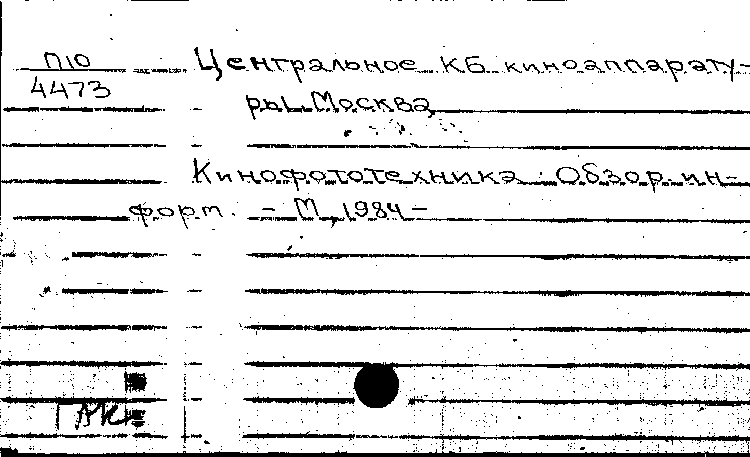 П10
4473
Центральное КБ киноаппарату-
ры. Москва
Кинофототехника: Обзор. ин-
форм. - М., 1984 -